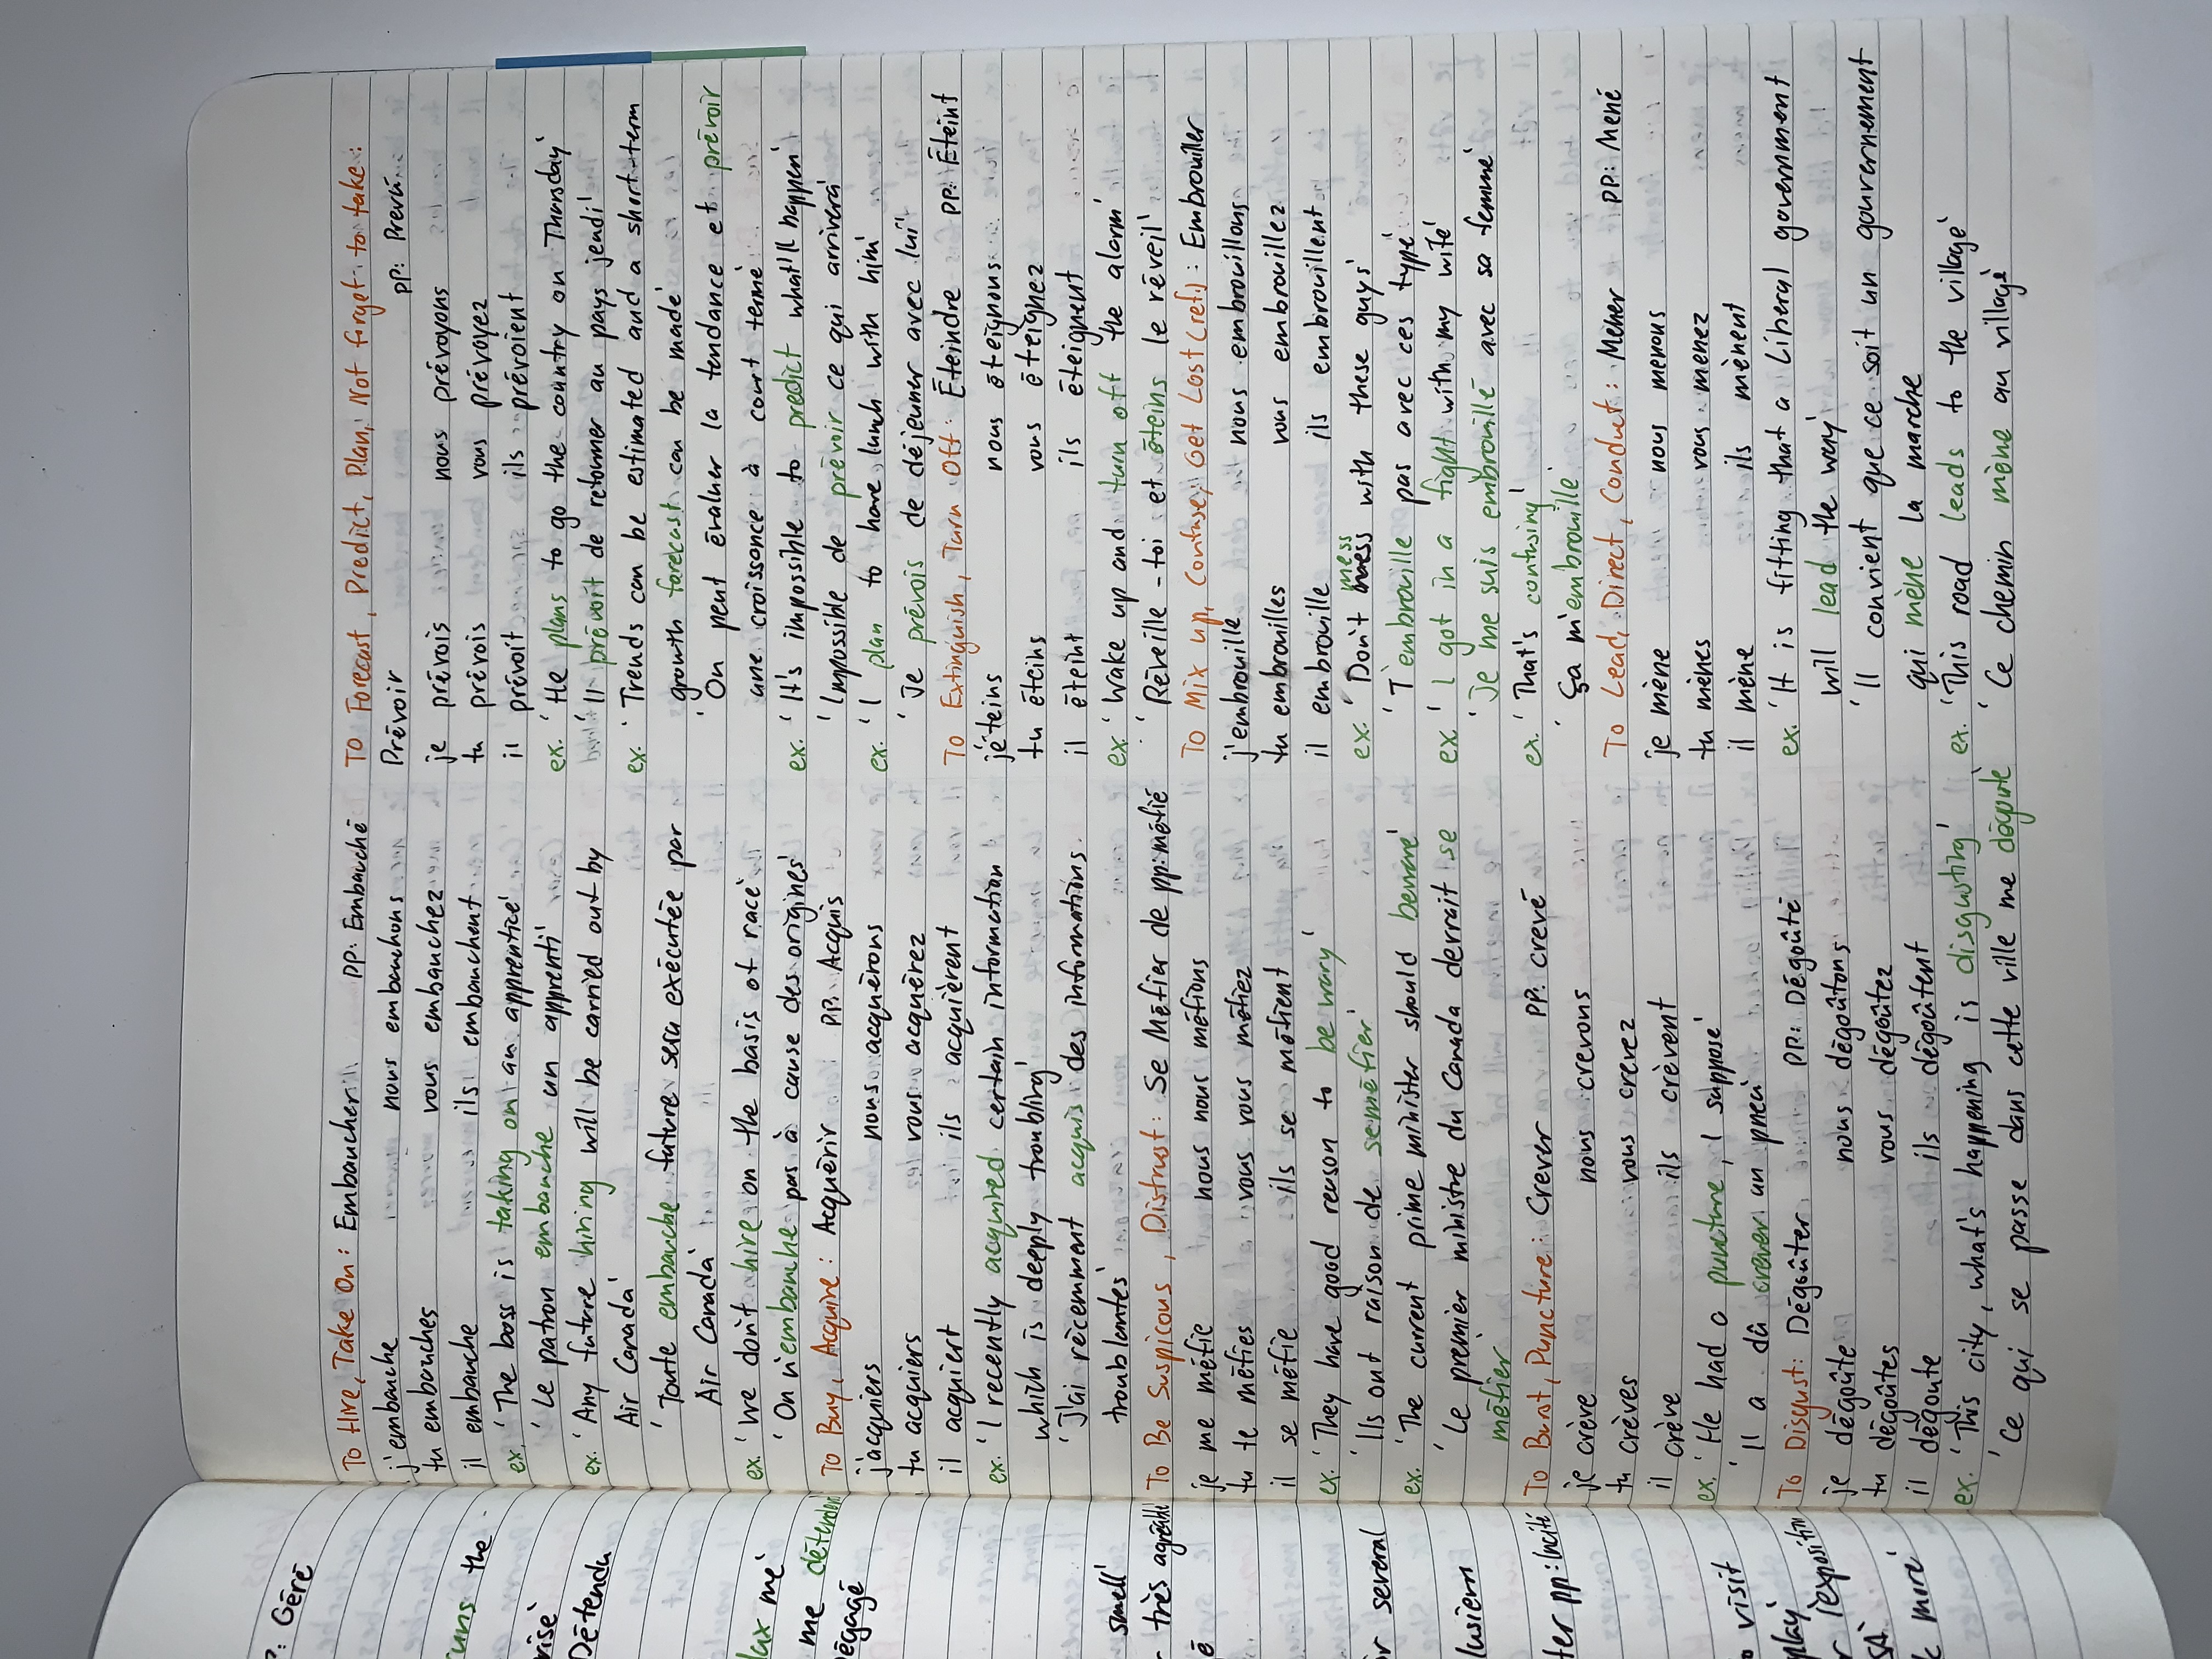 P: Géré
runs the
risé
Détendu
lax me'
me détendent
Dégagé
smell'
très agréable
é
or several
lusieurs
ter pp: Incité
o visit
play'
r l'exposition
SSA
k more'
To Hire, Take On: Embaucher PP: Embauché
j'embauche nous embauchons
tu embauches vous embauchez
il embauche ils embauchent
ex. 'The boss is taking on an apprentice'
'Le patron embauche un apprenti'
ex. 'Any future hiring will be carried out by
Air Canada'
'Toute embauche future sera exécutée par
Air Canada'
ex. 'We don't hire on the basis of race'
'On n'embauche pas à cause des origines'
To Buy, Acquire: Acquérir PP: Acquis
j'acquiers nous acquérons
tu acquiers vous acquérez
il acquiert ils acquièrent
ex. 'I recently acquired certain information
which is deeply troubling'
'J'ai récemment acquis des informations
troublantes'
To Be Suspicous, Distrust: Se Méfier de pp: méfié
je me méfie nous nous méfions
tu te méfies vous vous méfiez
il se méfie ils se méfient
ex. 'They have good reason to be wary'
'Ils ont raison de se méfier'
ex. 'The current prime minister should beware'
'Le premier ministre du Canada devrait se
méfier'
To Burst, Puncture: Crever PP: crevé
je crève nous crevons
tu crèves vous crevez
il crève ils crèvent
ex. 'He had a puncture, I suppose'
'Il a dû crever un pneu'
To Disgust: Dégoûter PP: Dégoûté
je dégoûte nous dégoûtons
tu dégoûtes vous dégoûtez
il dégoute ils dégoûtent
ex. 'This city, what's happening is disgusting'
'Ce qui se passe dans cette ville me dégoûte'
To Forecast, Predict, Plan, Not forget to take:
Prévoir PP: Prévu
je prévois nous prévoyons
tu prévois vous prévoyez
il prévoit ils prévoient
ex. 'He plans to go the country on Thursday'
'Il prévoit de retourner au pays jeudi'
ex. 'Trends can be estimated and a short-term
growth forecast can be made'
'On peut évaluer la tendance et prévoir
une croissance à court terme'
ex. 'It's impossible to predict what'll happen'
'Impossible de prévoir ce qui arrivera'
ex. 'I plan to have lunch with him'
'Je prévois de déjeuner avec lui'
To Extinguish, Turn Off: Éteindre PP: Éteint
j'éteins nous éteignons
tu éteins vous éteignez
il éteint ils éteignent
ex 'Wake up and turn off the alarm'
'Réveille-toi et éteins le réveil'
To Mix up, Confuse, Get Lost (ref.): Embrouiller
j'embrouille nous embrouillons
tu embrouilles vous embrouillez
il embrouille ils embrouillent
ex. 'Don't mess with these guys'
'T'embrouille pas avec ces types'
ex. 'I got in a fight with my wife'
'Je me suis embrouillé avec sa femme'
ex. 'That's confusing'
'Ça m'embrouille'
To Lead, Direct, Conduct: Mener PP: Mené
je mène nous menons
tu mènes vous menez
il mène ils mènent
ex. 'It is fitting that a Liberal government
will lead the way'
'Il convient que ce soit un gouvernement
qui mène la marche
ex. 'This road leads to the village'
'Ce chemin mène au village'